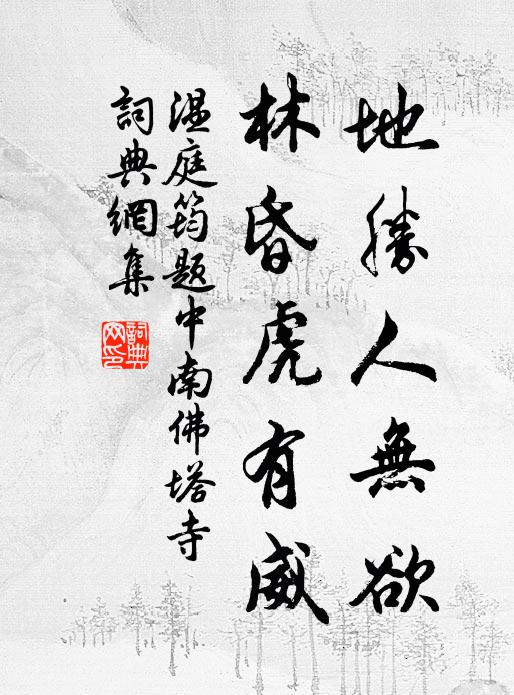 地勝人無欲
林昏虎有威
溫庭筠題中南佛塔寺
詞典網集
詞典網印